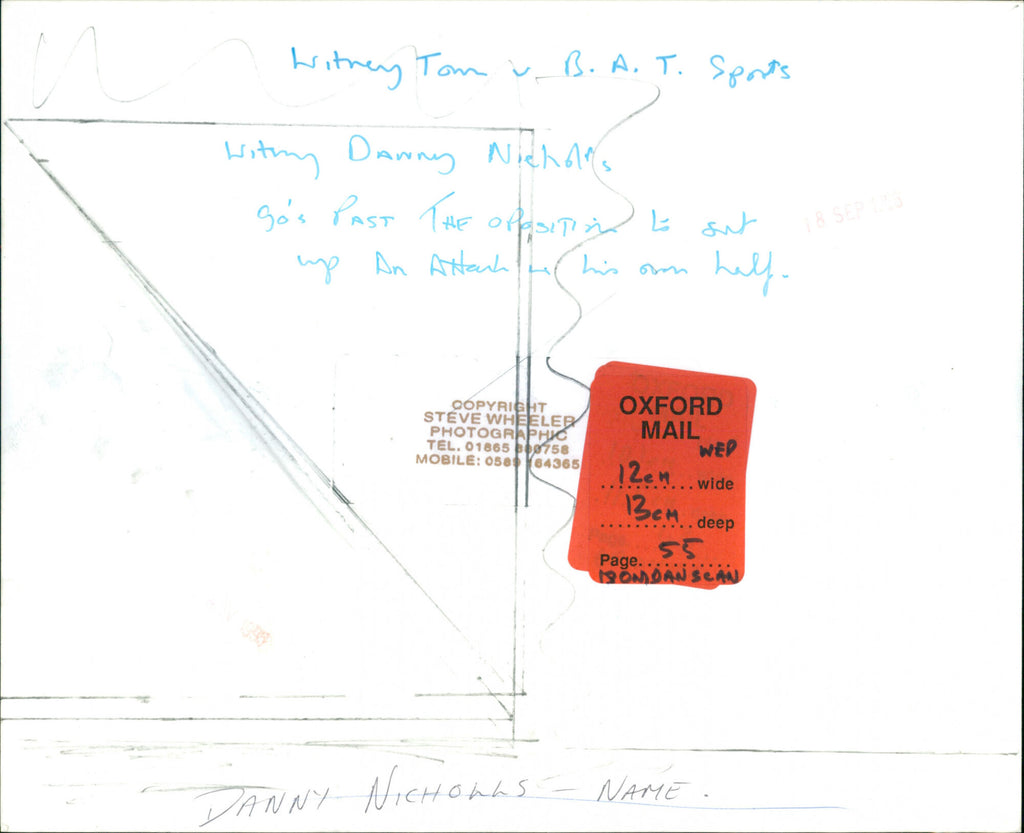 Witney Town v B. A. T. Sports
Witney Danny Nicholls
go's PAST THE oPOSITION to set
up An Attack in his own half.
18 SEP
COPYRIGHT
STEVE WHEELER
PHOTOGRAPHIC
TEL. 01865 0758
MOBILE: 0589 64365
OXFORD
MAIL
WED
12cm wide
13cm deep
Page 55
DANNY NICHOLLS - NAME.